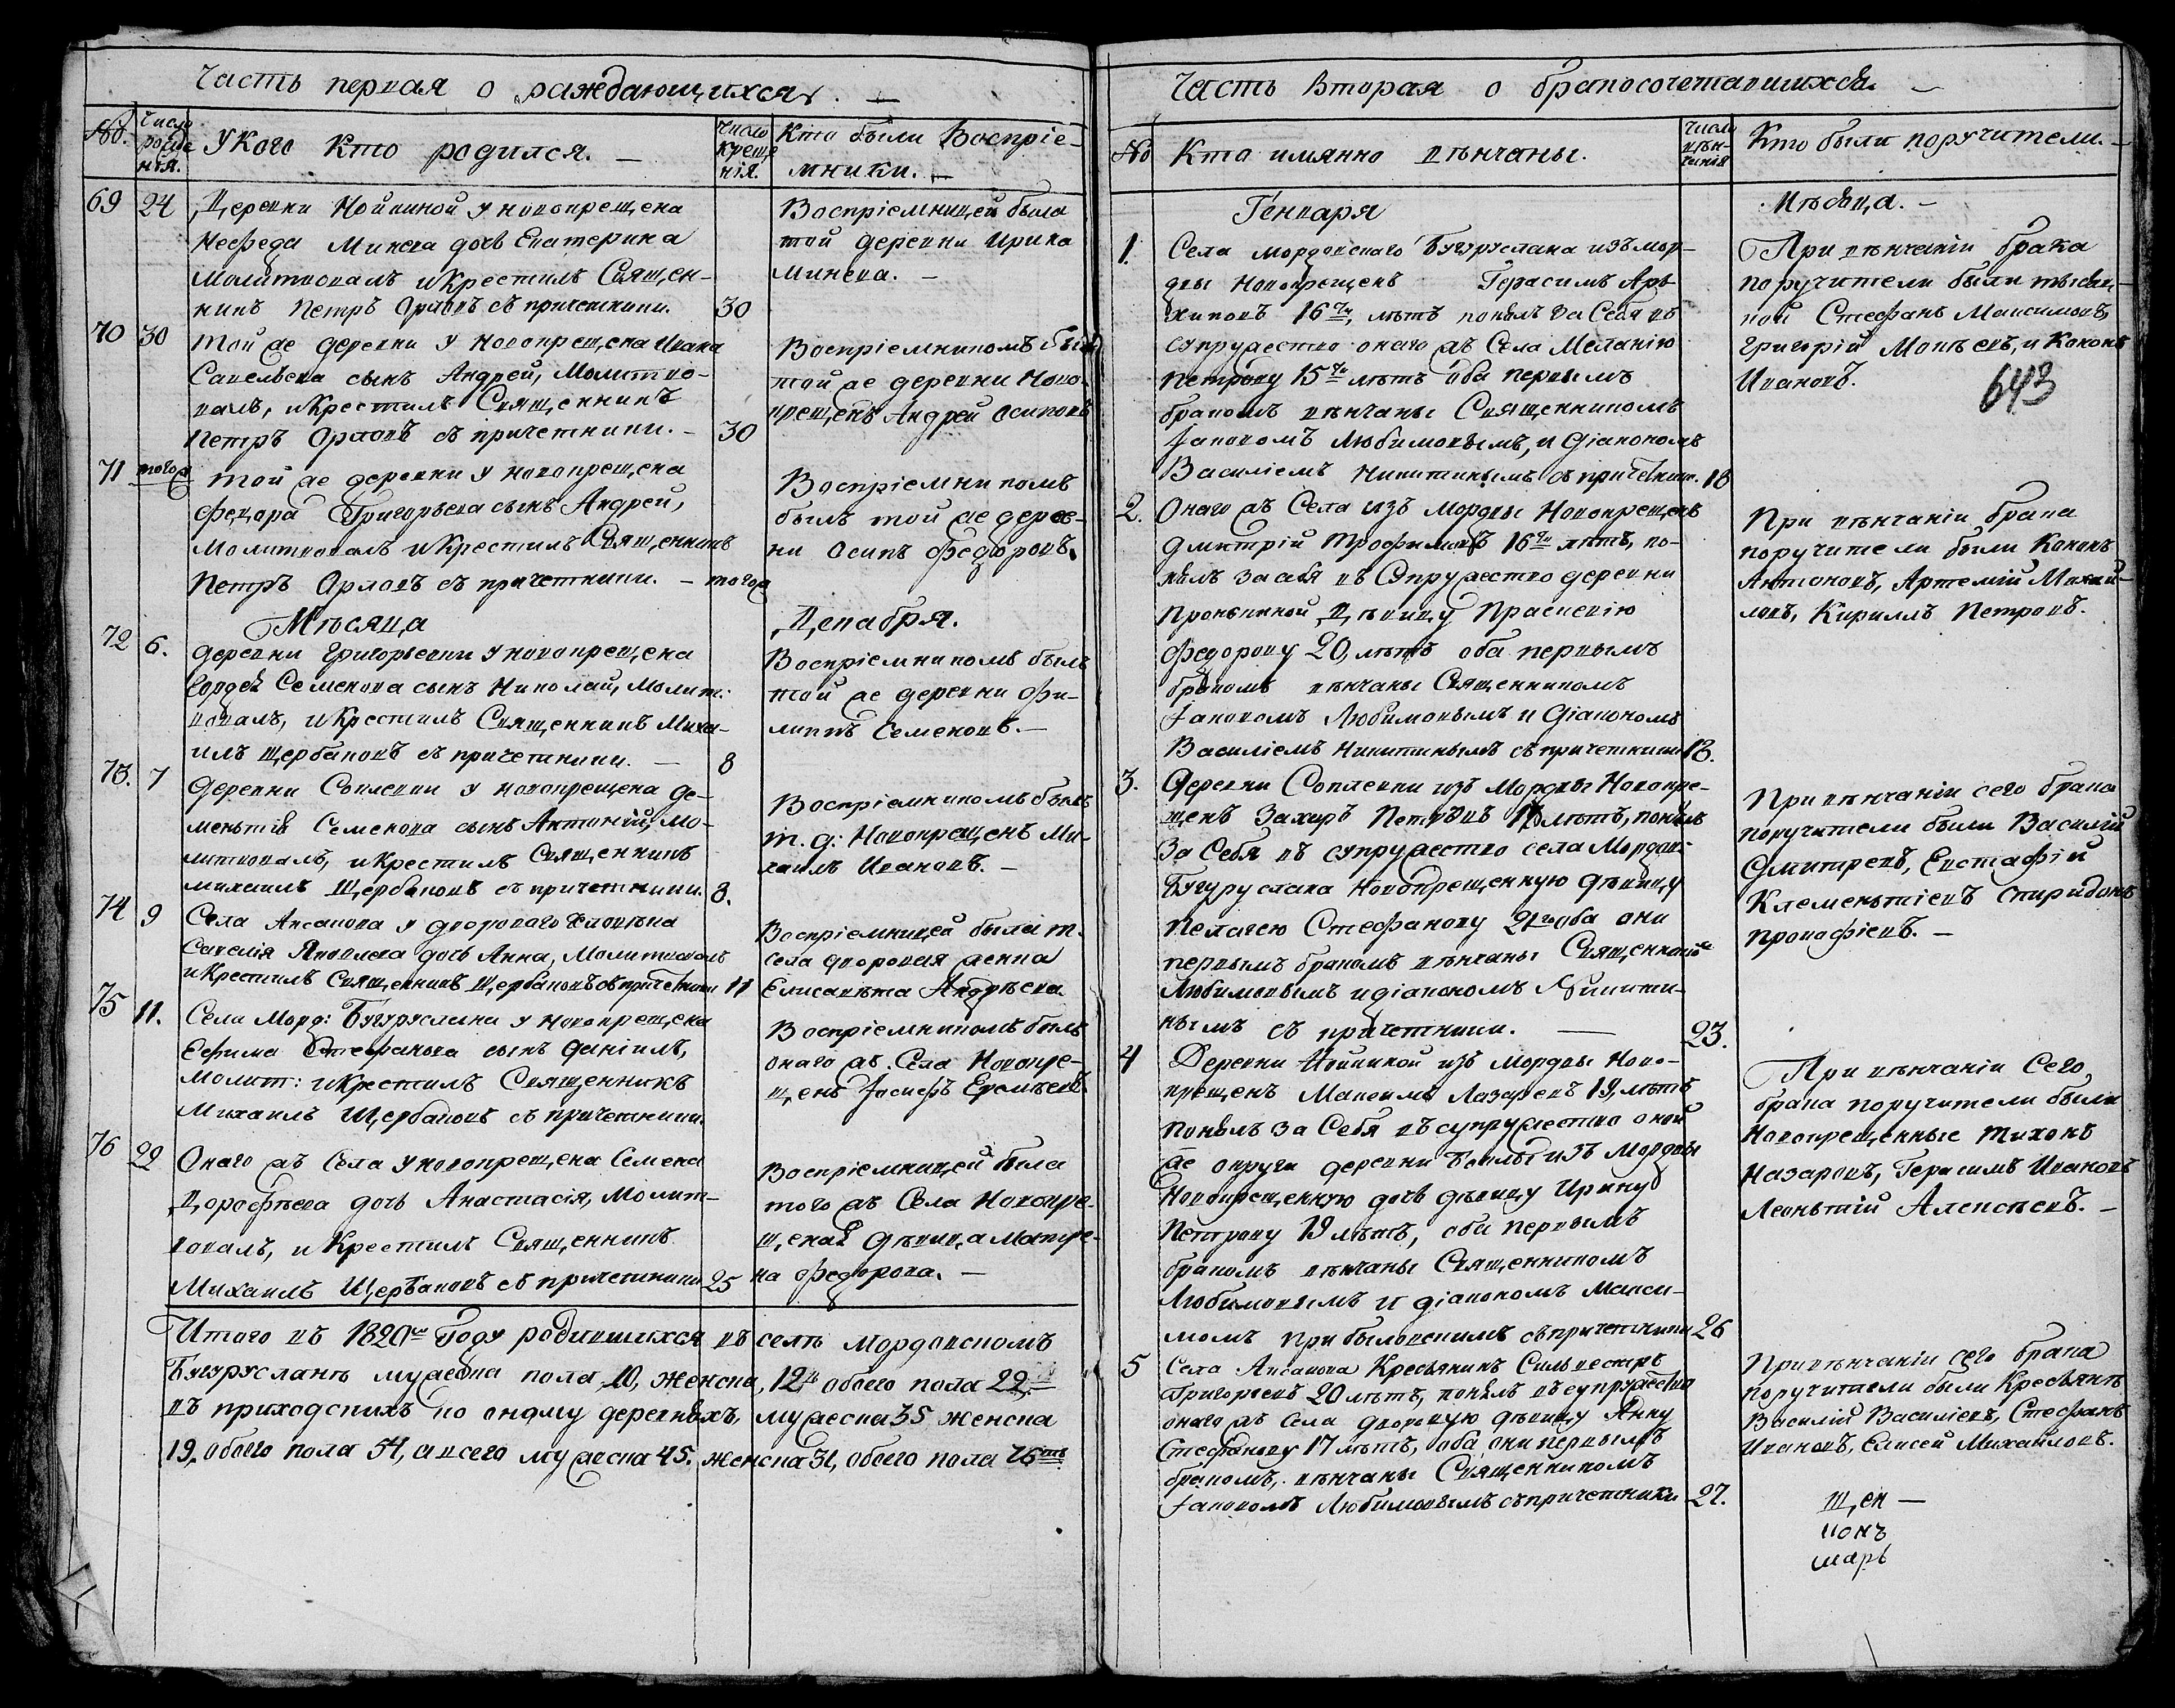 Часть первая о раждающихся. —
№.
Число рожде нія.
У Кого Кто родился. —
Число креще нія.
Кто были Воспріе-
мники. —
69 24 Деревни Нойкиной у новокрещена
Нефеда Минеева дочь Екатерина
Молитвовалъ и Крестилъ Священ-
никъ Петръ Орловъ съ причетники. 30
Воспріемницей была
той деревни Ирина
Минеева. —
70 30 Той же деревни у новокрещена Ивана
Савельева сынъ Андрей, Молитво-
валъ, и Крестилъ Священникъ
Петръ Орловъ съ причетники. — 30
Воспріемникомъ былъ
той же деревни Ново-
крещенъ Андрей Осиповъ
71 тогож той же деревни у новокрещена
Федора Григорьева сынъ Андрей,
Молитвовалъ и Крестилъ Священникъ
Петръ Орловъ съ причетники. — тогож
Воспріемникомъ
былъ той же дерев-
ни Осипъ Федоровъ.
Мѣсяца Декабря.
72 6. деревни Григорьевки у новокрещена
Гордея Семенова сынъ Николай, Молит:
вовалъ, и Крестилъ Священникъ Миха-
илъ Щербаковъ съ причетники. — 8
Воспріемникомъ былъ
той же деревни Фи-
липъ Семеновъ. —
73. 7 Деревни Саплевки у новокрещена Де-
ментія Семенова сынъ Антоній, Мо-
литвовалъ, и Крестилъ Священникъ
михаилъ Щербаковъ съ причетники. 8.
Воспріемникомъ былъ
т. д: Новокрещенъ Ми-
хаилъ Ивановъ. —
74 9 Села Аксакова у двороваго человѣка
Савелія Яковлева дочь Анна, Молитвовалъ
и Крестилъ Священникъ Щербаковъ съ причетники 11
Воспріемницей была т.
села дворовая женка
Елисавѣта Андрѣева.
75 11. Села Морд: Бугуруслана у новокрещена
Ефима Стефанова сынъ Даніилъ,
Молит: и Крестилъ Священникъ
Михаилъ Щербаковъ съ причетники.
Воспріемникомъ былъ
онаго жъ Села Новокре-
щенъ Іосифъ Еремѣевъ.
76 22 Онаго жъ Села у новокрещена Семена
Дорофѣева дочь Анастасія, Молит-
вовалъ, и Крестилъ Священникъ
Михаилъ Щербаковъ съ причетники 25
Воспріемницей была
того жъ Села Новокре-
щеная дѣвица Матре-
на Федорова. —
Итого въ 1820мъ Году родившихся въ селѣ Мордовскомъ
Бугурусланѣ мужеска пола, 10, женска, 12ть обоего пола 22. —
въ приходскихъ по оному деревняхъ, мужеска 35 женска
19. обоего пола 54, а всего мужеска 45. женска 31, обоего пола 76ть
Часть Вторая о бракосочетавшихся. —
№
Кто имянно вѣнчаны.
Число вѣн- чанія
Кто были поручители. —
Генваря Мѣсяца. —
1. Села мордовскаго Бугуруслана изъ мор-
двы Новокрещенъ Герасимъ Ар-
хиповъ 16ти, лѣтъ понялъ за Себя въ
супружество онаго жъ Села Меланію
Петрову 15ти лѣтъ оба первымъ
бракомъ вѣнчаны Священникомъ
Іаковомъ Любимовымъ, и Діакономъ
Василіемъ Никитинымъ съ причетник. 18
При вѣнчаніи брака
поручители были
Стефанъ Максимовъ,
Григорій Мокѣевъ, и Кононъ
Ивановъ.
643
2. Онаго жъ Села изъ Мордвы Новокрещенъ
Дмитрій Трофимовъ 16ти лѣтъ, по-
нялъ за себя въ Супружество деревни
Пронькиной Дѣвицу Прасковію
Федорову 20, лѣтъ оба первымъ
бракомъ вѣнчаны Священникомъ
Іаковомъ Любимовымъ и Діакономъ
Василіемъ Никитинымъ съ причетники 18.
При вѣнчаніи брака
поручители были Кононъ
Антоновъ, Артемій Михай-
ловъ, Кириллъ Петровъ.
3. Деревни Соплевки изъ Мордвы Новокре-
щенъ Захаръ Петровъ лѣтъ, понялъ
За Себя въ супружество села Мордов:
Бугуруслана Новокрещенную дѣвицу
Пелагею Стефанову 21го оба они
первымъ бракомъ вѣнчаны Священникомъ
Любимовымъ и діакономъ Никити-
нымъ съ причетники. — 23.
При вѣнчаніи сего брака
поручители были Василій
Дмитревъ, Евстафій
Клементіевъ Спиридонъ
Прокофіевъ. —
4 Деревни Нойкиной изъ Мордвы Ново-
крещенъ Максимъ Лазаревъ 19, лѣтъ
Понялъ за Себя въ супружество оной
же округи деревни изъ Мордвы
Новокрещенную дочь дѣвицу Ирину
Петрову 19 лѣтъ, оба первымъ
бракомъ вѣнчаны Священникомъ
Любимовымъ и діакономъ Макси-
момъ Прибыловскимъ съ причетники 26
При вѣнчаніи Сего
брака поручители были
Новокрещенные Тихонъ
Назаровъ, Герасимъ Ивановъ
Леонтій Алексѣевъ. —
5 Села Аксакова Крестьянинъ Сильвестръ
Григорьевъ 20 лѣтъ, понялъ въ супружество
онаго жъ села дворовую дѣвицу Анну
Стефанову 17 лѣтъ, оба они первымъ
бракомъ, вѣнчаны Священникомъ
Іаковомъ Любимовымъ съ причетники 27.
При вѣнчаніи сего брака
поручители были Крестьяне
Василій Василіевъ, Стефанъ
Ивановъ, Елисей Михайловъ.
щен —
шарь